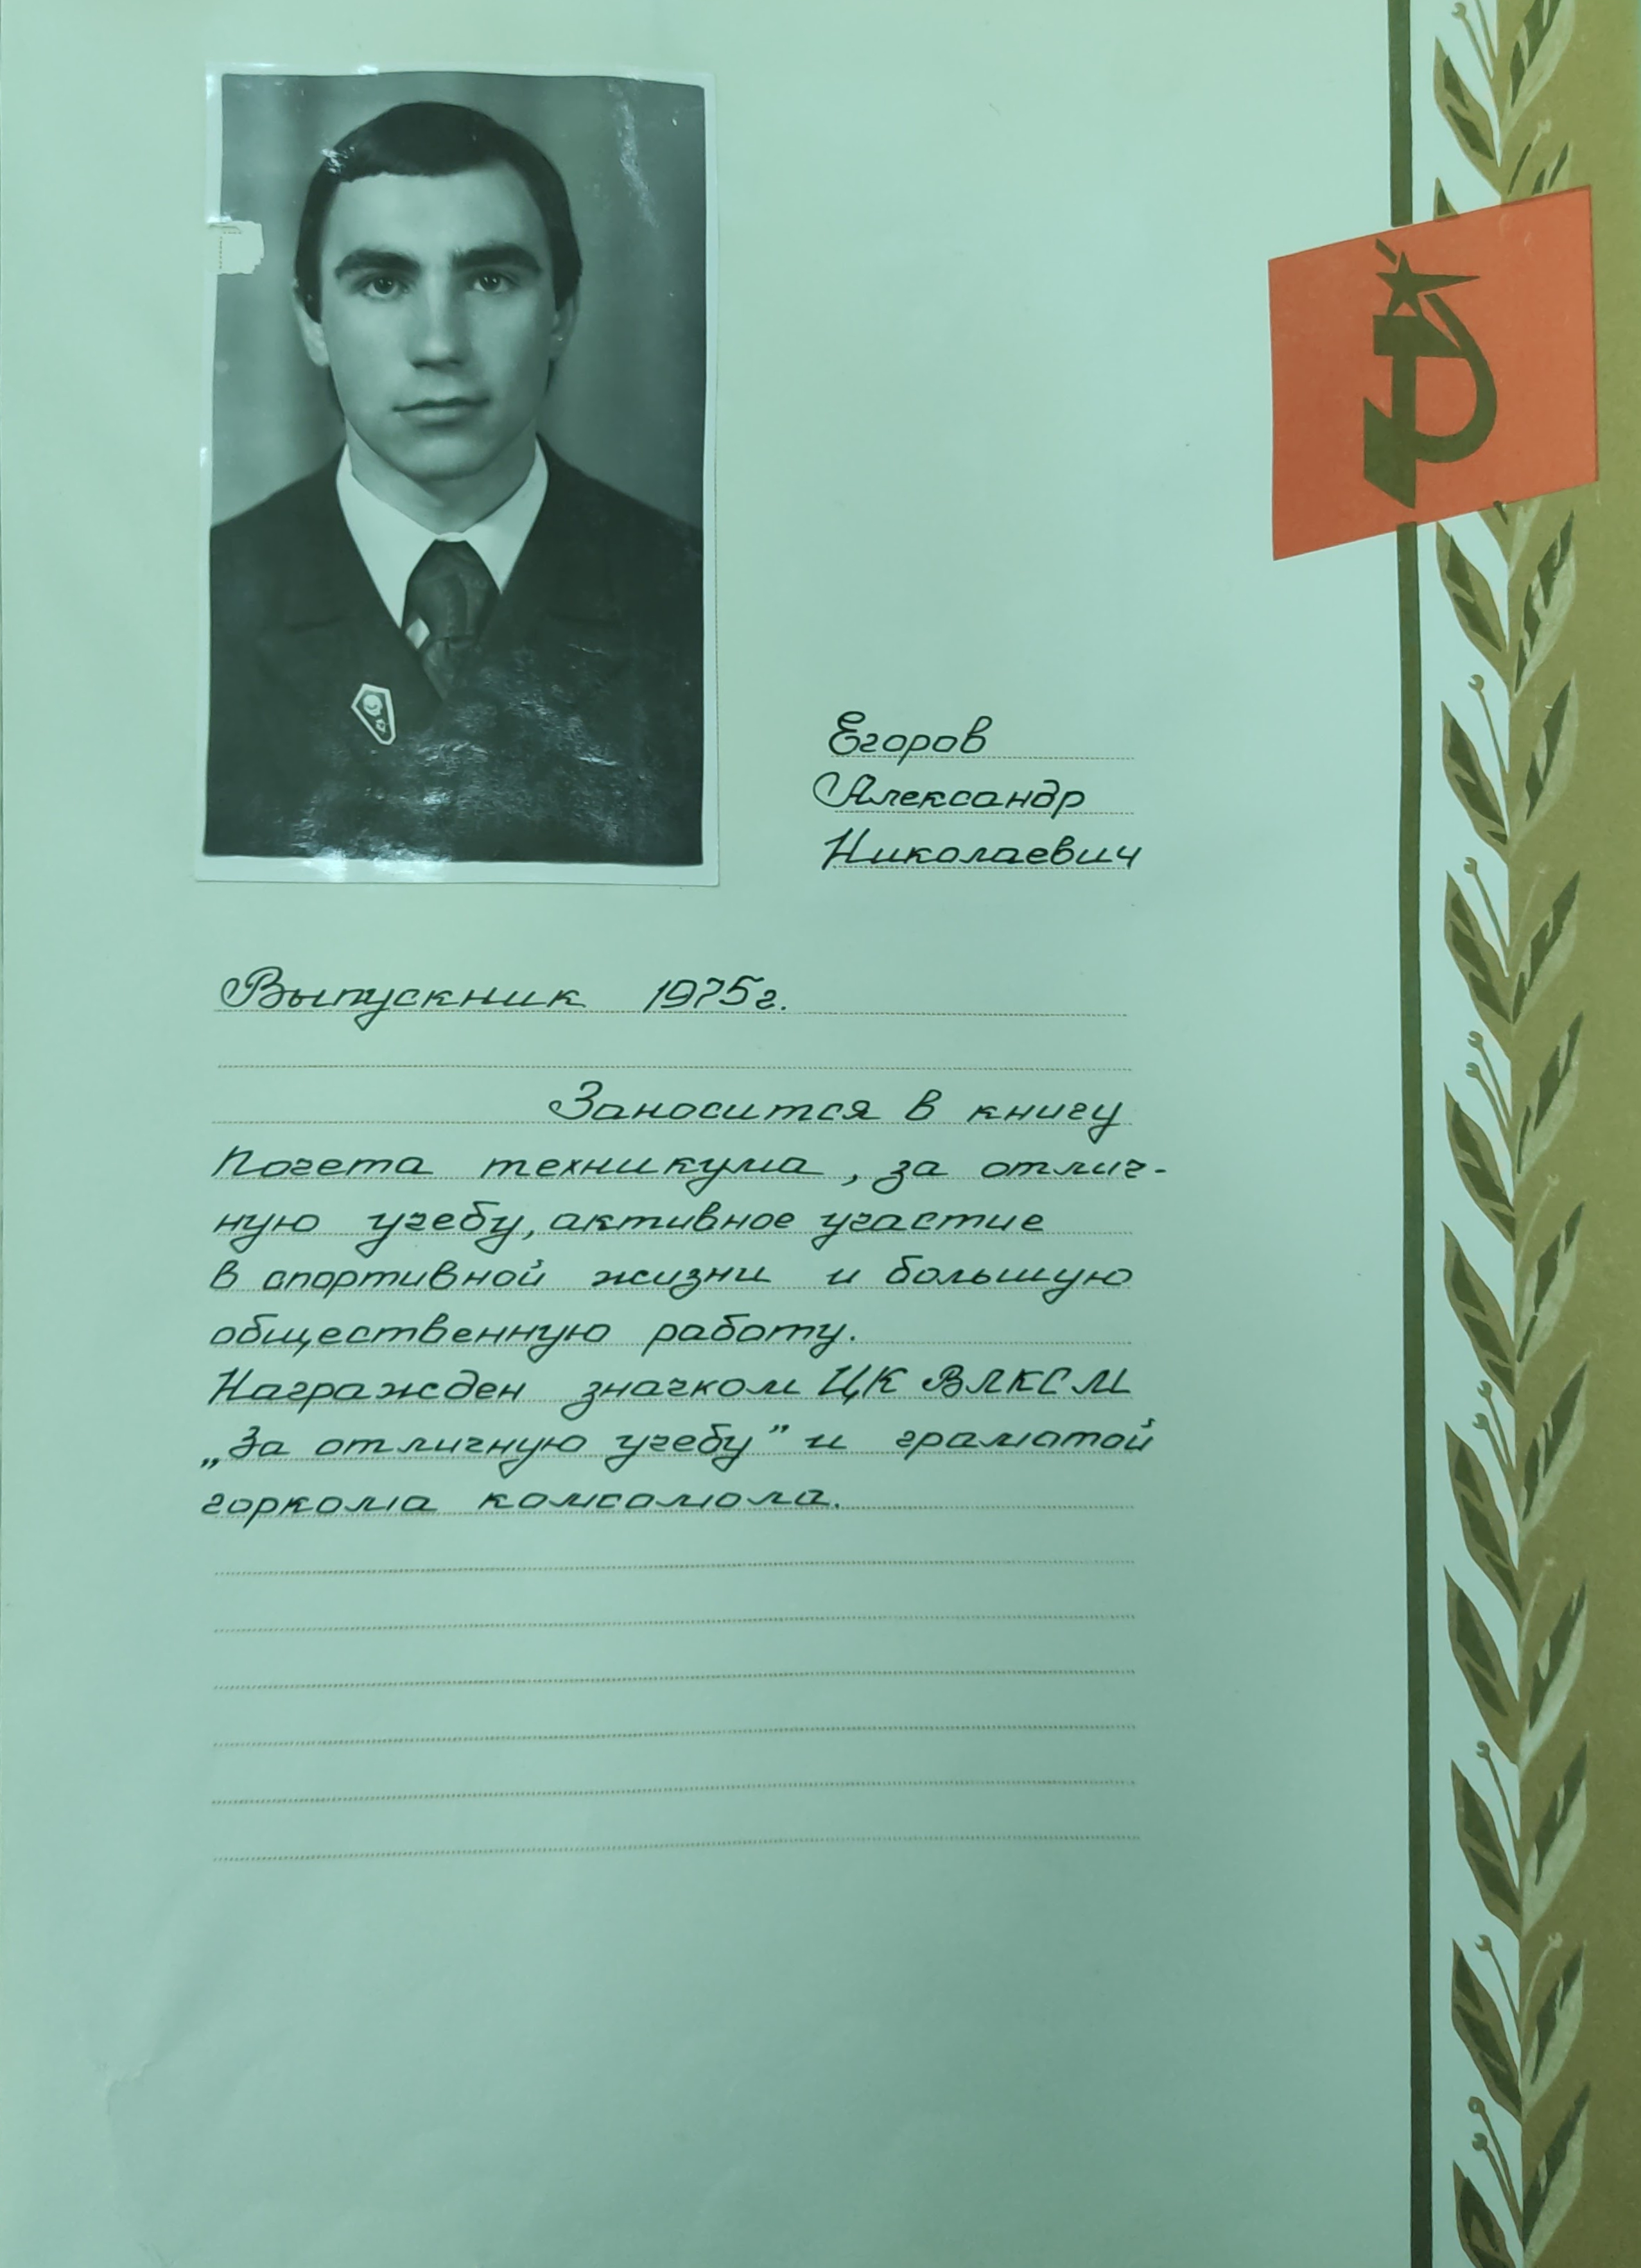 Егоров
Александр
Николаевич
Выпускник 1975г.
Заносится в книгу
Почета техникума, за отлич-
ную учебу, активное участие
в спортивной жизни и большую
общественную работу.
Награжден значком ЦК ВЛКСМ
„За отличную учебу” и грамотой
горкома комсомола.